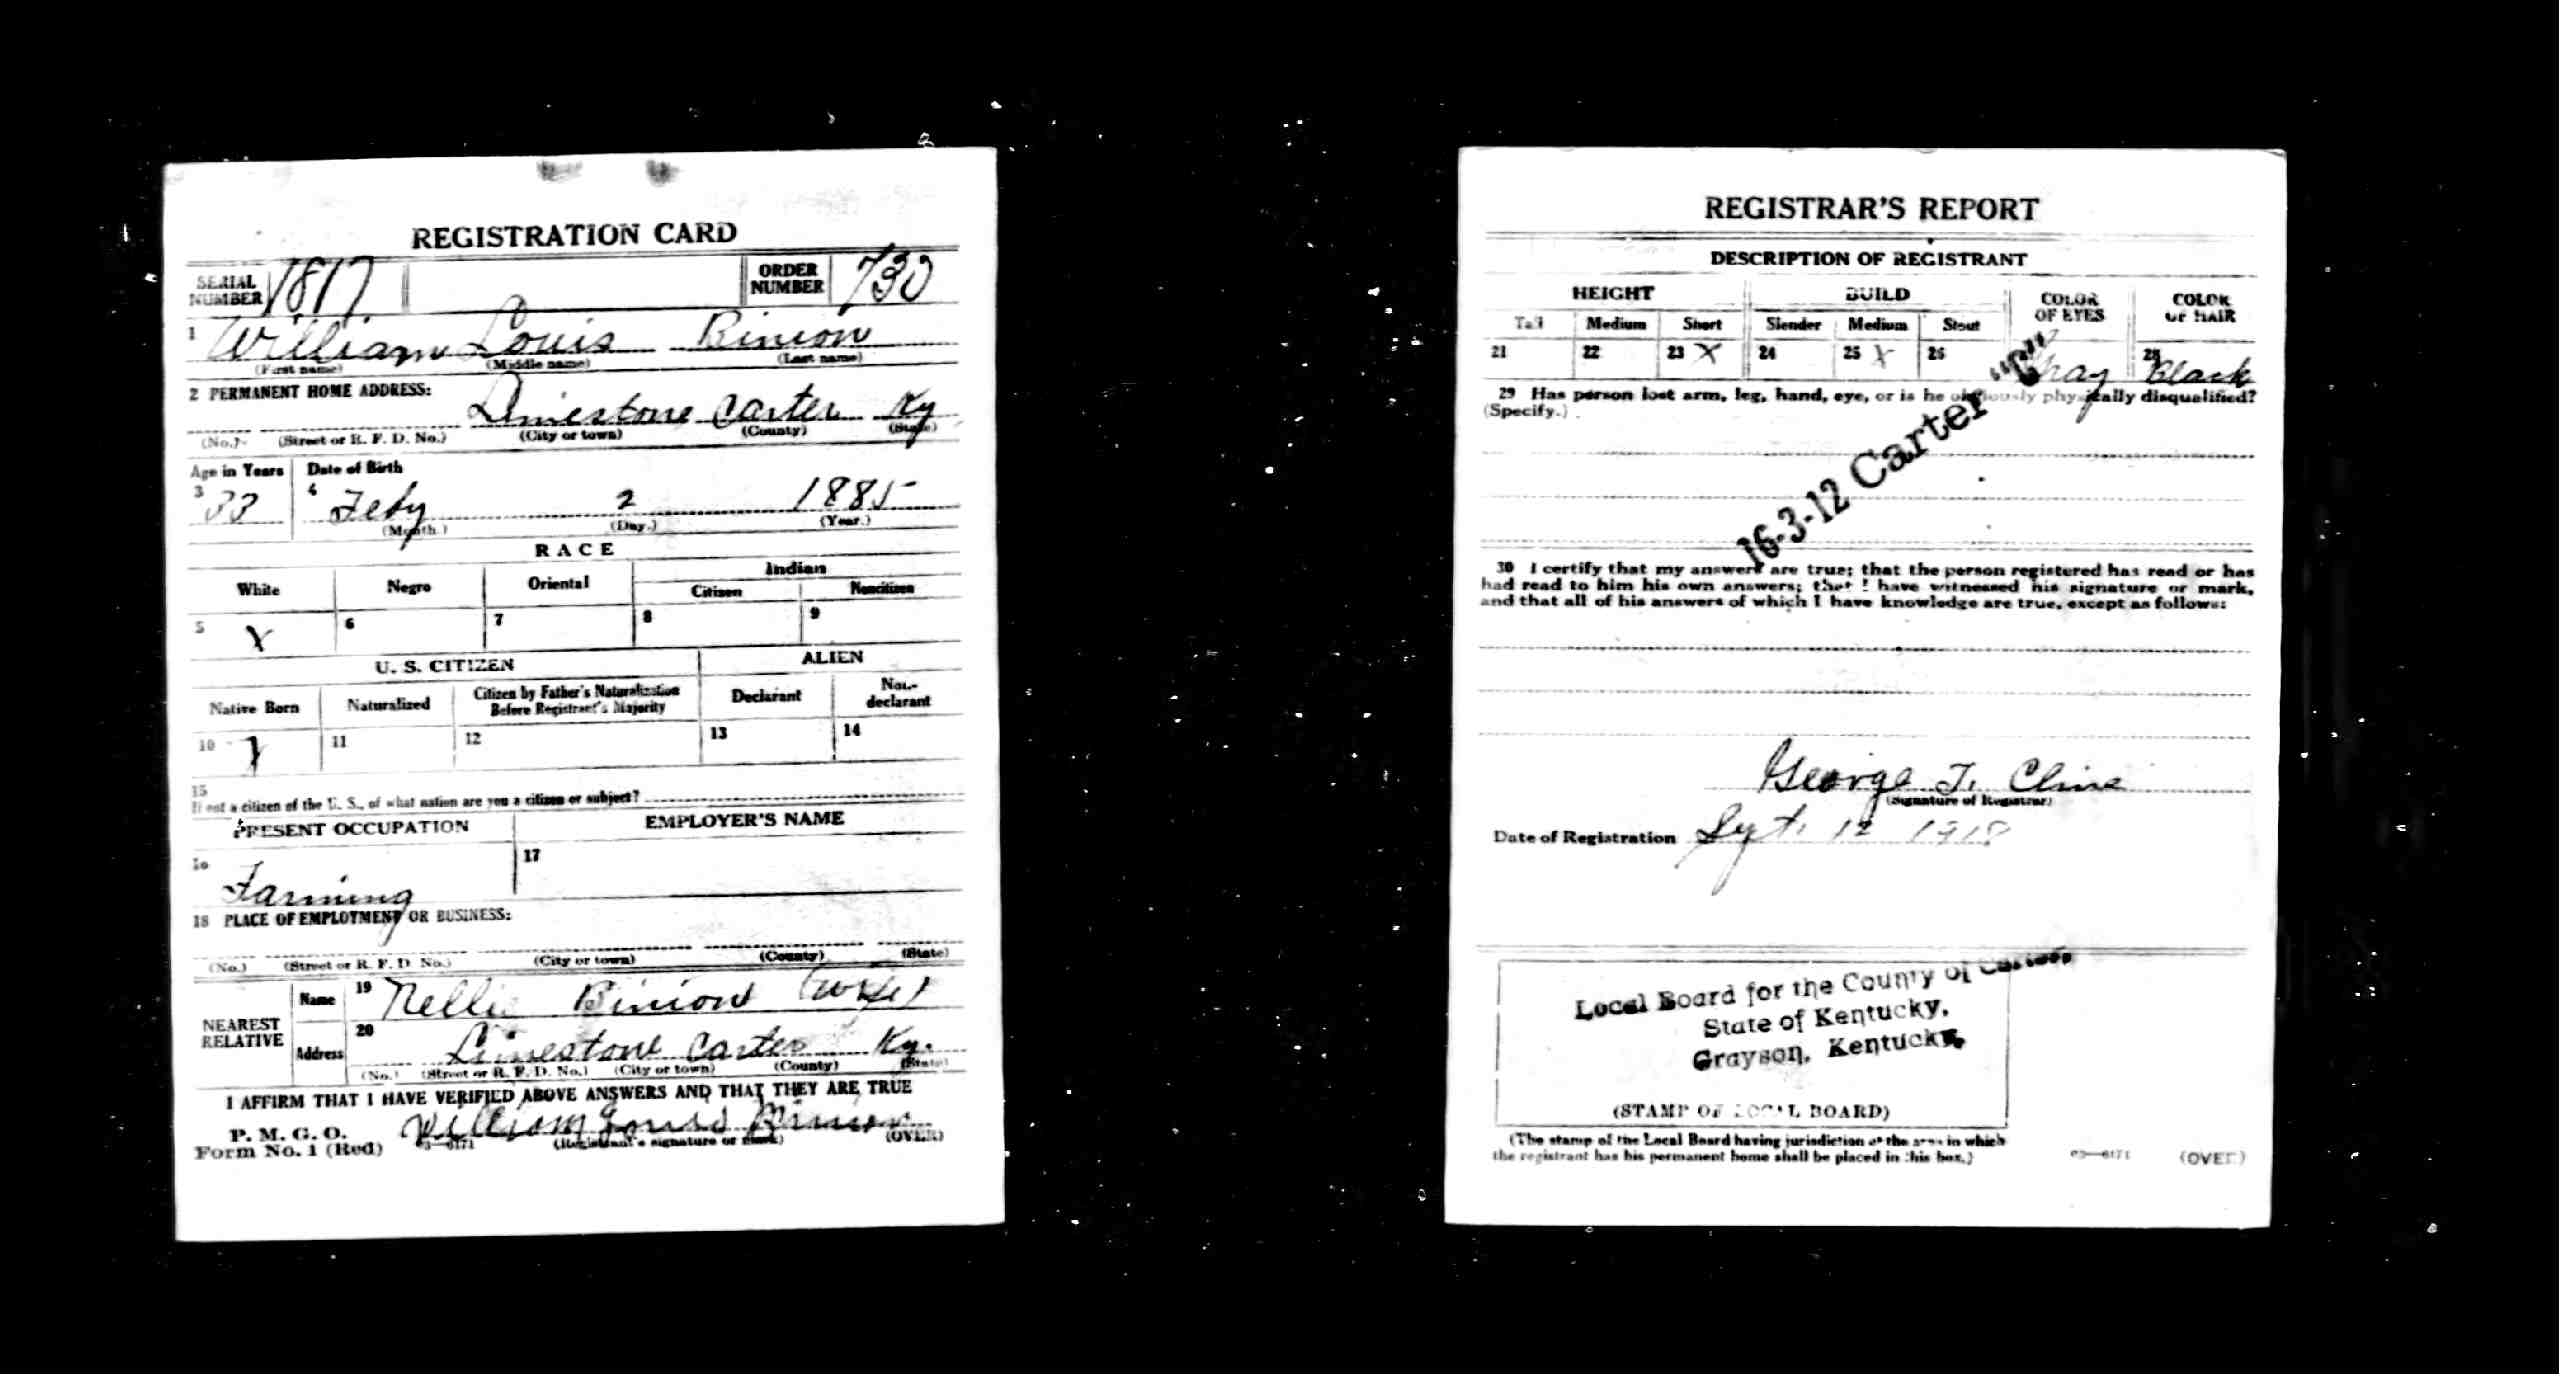 REGISTRATION CARD
SERIAL NUMBER 1817 ORDER NUMBER 730
1 William Louis Binion
(First name) (Middle name) (Last name)
2 PERMANENT HOME ADDRESS:
Limestone Carter Ky
(No.) (Street or R. F. D. No.) (City or town) (County) (State)
Age in Years Date of Birth
3 33 4 Feby 2 1885
(Month.) (Day.) (Year.)
RACE
White Negro Oriental Indian
Citizen Noncitizen
5 X 6 7 8 9
U. S. CITIZEN ALIEN
Native Born Naturalized Citizen by Father's Naturalization Before Registrant's Majority Declarant Non-declarant
10 X 11 12 13 14
15
If not a citizen of the U. S., of what nation are you a citizen or subject?
PRESENT OCCUPATION EMPLOYER'S NAME
16 Farming 17
18 PLACE OF EMPLOYMENT OR BUSINESS:
(No.) (Street or R. F. D. No.) (City or town) (County) (State)
NEAREST RELATIVE Name 19 Nellie Binion (Wife)
Address 20 Limestone Carter Ky.
(No.) (Street or R. F. D. No.) (City or town) (County) (State)
I AFFIRM THAT I HAVE VERIFIED ABOVE ANSWERS AND THAT THEY ARE TRUE
P. M. G. O.
Form No. 1 (Red) 03—6171 William Louis Binion
(Registrant's signature or mark) (OVER)
REGISTRAR'S REPORT
DESCRIPTION OF REGISTRANT
HEIGHT BUILD COLOR OF EYES COLOR OF HAIR
Tall Medium Short Slender Medium Stout
21 22 23 X 24 25 X 26 Gray 28 Black
29 Has person lost arm, leg, hand, eye, or is he obviously physically disqualified?
(Specify.)
16-3-12 Carter "C"
30 I certify that my answers are true; that the person registered has read or has
had read to him his own answers; that I have witnessed his signature or mark,
and that all of his answers of which I have knowledge are true, except as follows:
George T. Cline
(Signature of Registrar)
Date of Registration Sept. 12 1918
Local Board for the County of Carter,
State of Kentucky,
Grayson, Kentucky.
(STAMP OF LOCAL BOARD)
(The stamp of the Local Board having jurisdiction of the area in which
the registrant has his permanent home shall be placed in this box.)
03—6171 (OVER)